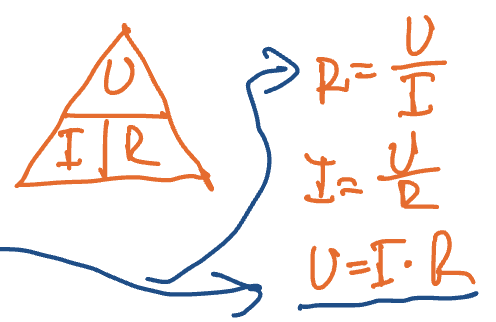 U
I R
R = U/I
I = U/R
U = I · R